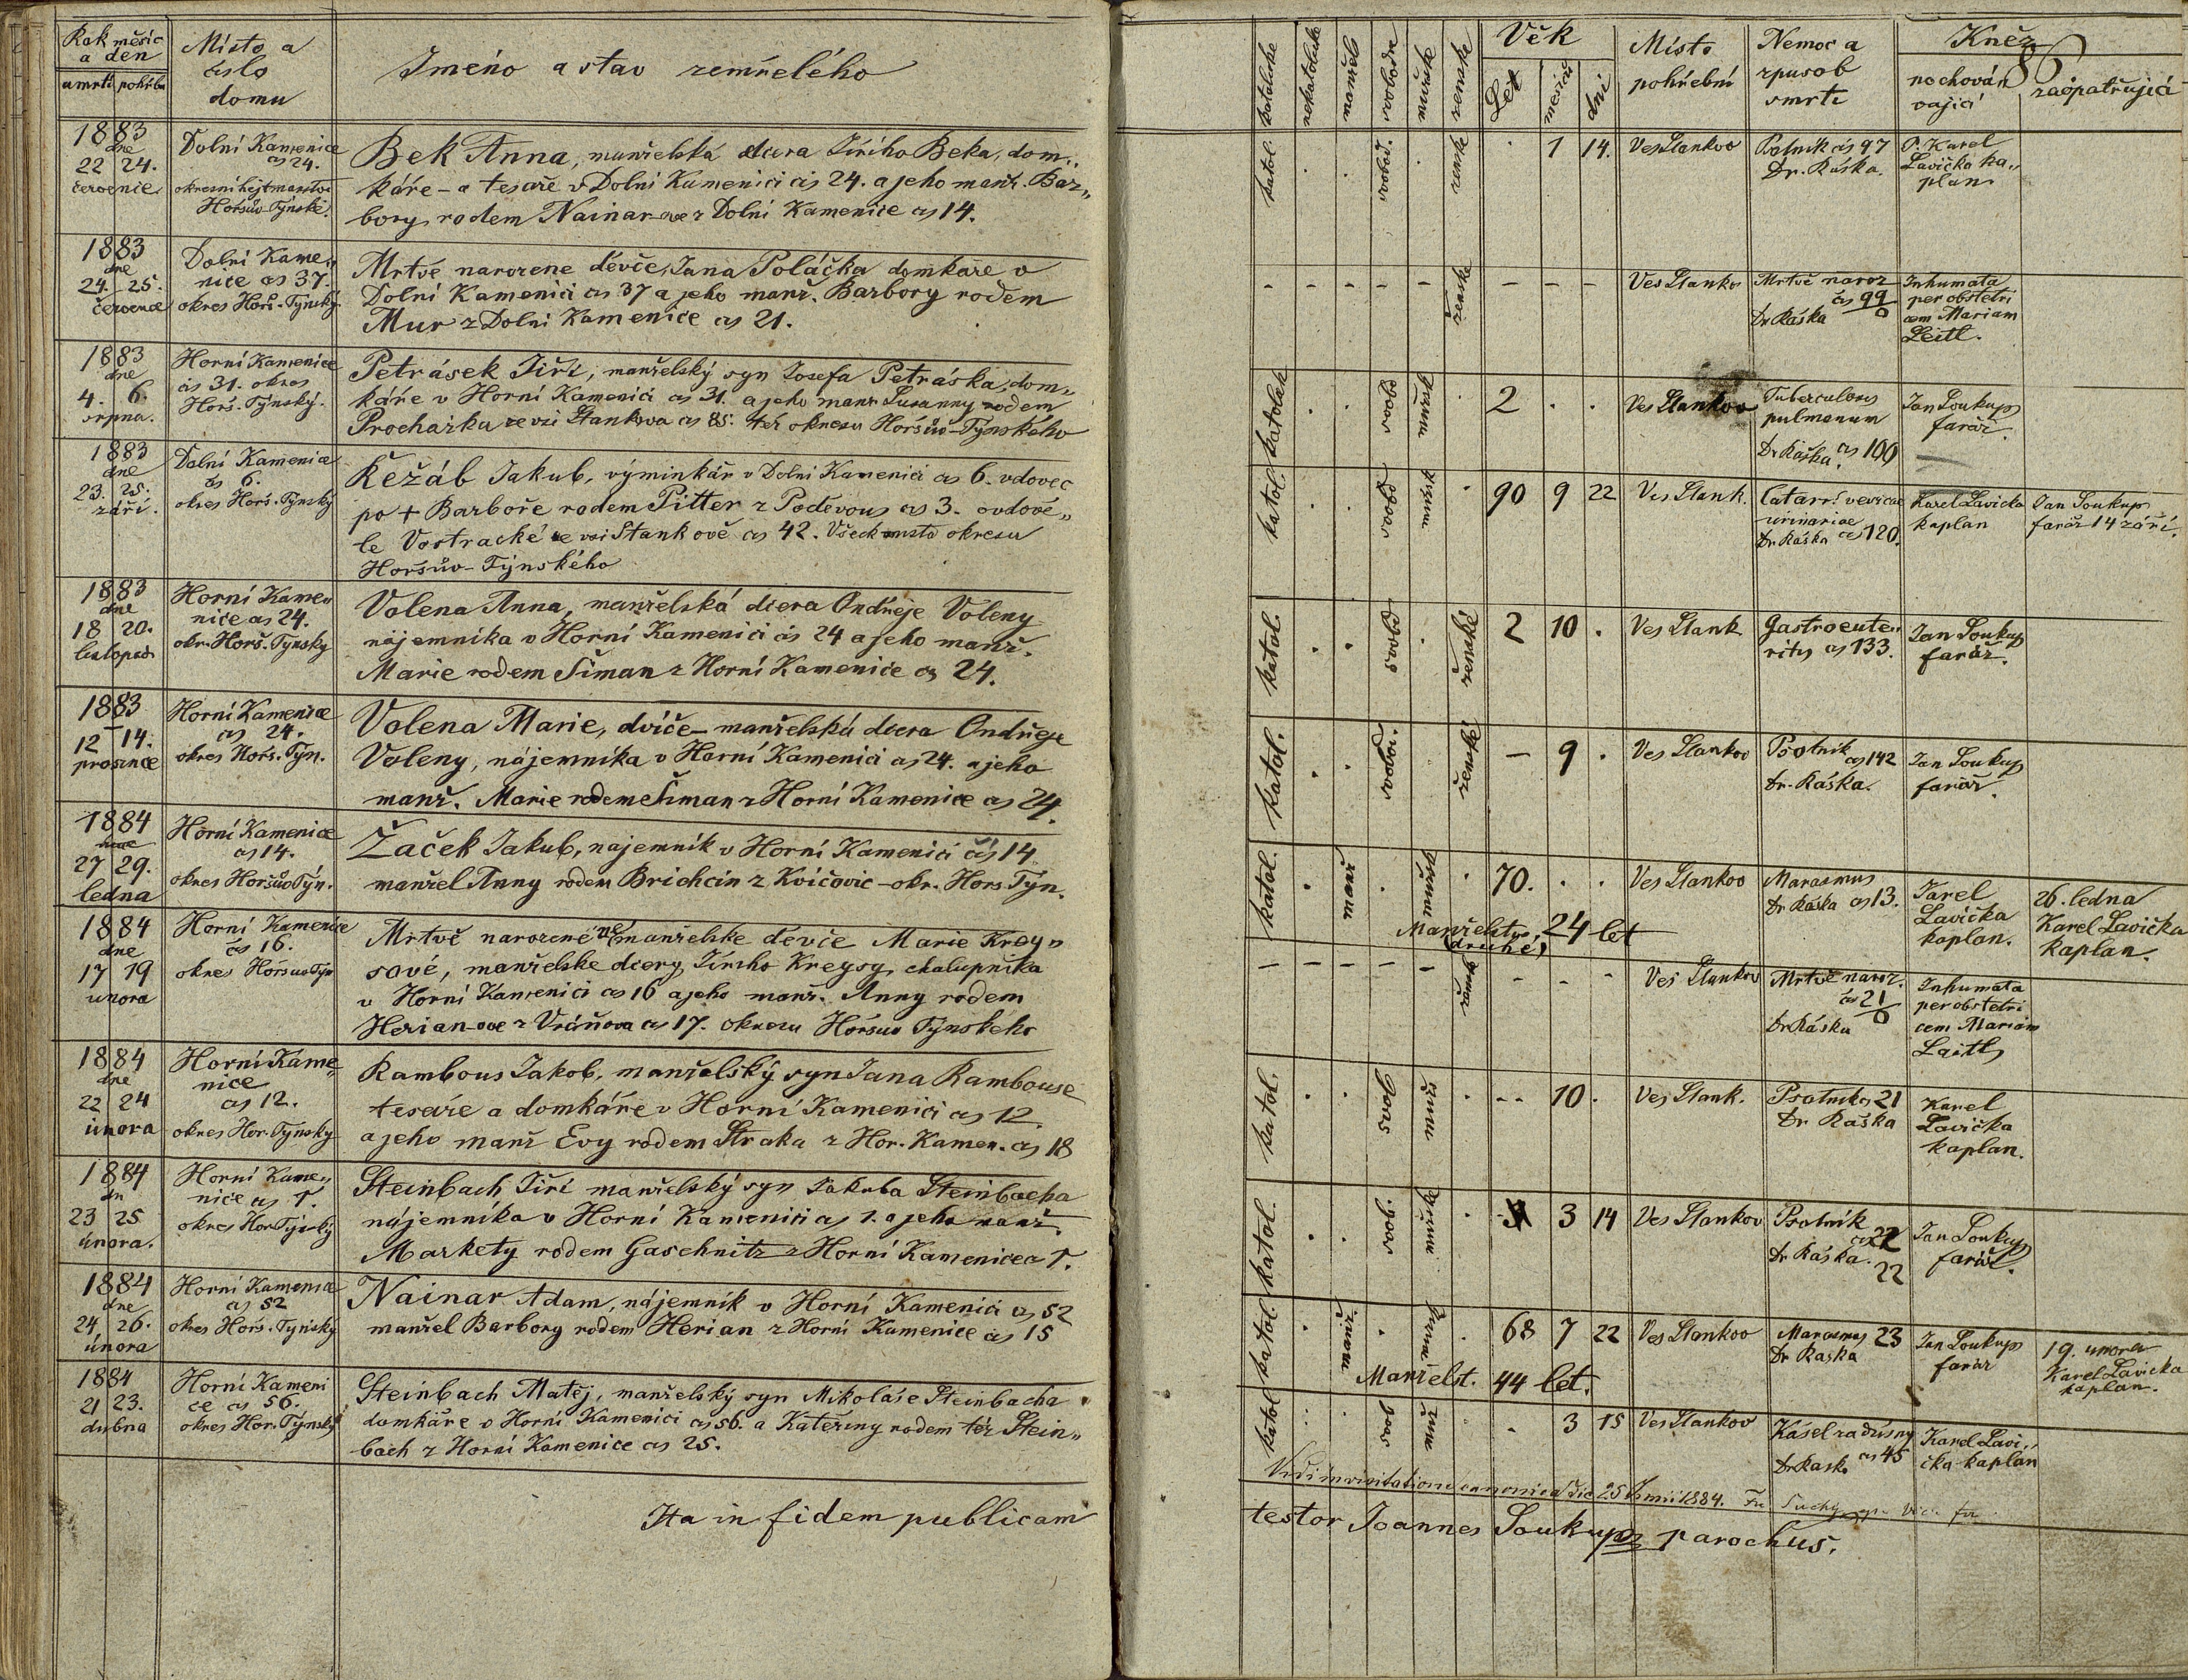 Rok měsíc
a den
umrti pohřbu
Místo a
čislo
domu
Jméno a stav zemřelého
1883
dne
22 24.
července
Dolní Kamenice
čs 24.
okresní hejtmanstvi
Horšův-Týnské.
Bek Anna, manželská dcera Jiřího Beka, dom„
káře - a tesaře v Dolní Kamenici čis 24. a jeho manž. Bar„
bory rodem Nainar-ove z Dolní Kamenice čs 14.
1883
dne
24. 25.
července
Dolní Kame„
nice čs 37.
okres Horš.-Týnský
Mrtvě narozene děvče, Jana Poláčka domkáře v
Dolní Kamenici čs 37 a jeho manž. Barbory rodem
Mur z Dolni Kamenice čs 21.
1883
dne
4. 6.
srpna.
Horní Kamenice
čis 31. okres
Horš.-Týnský.
Petrásek Jiří, manželský syn Josefa Petráska, dom„
káře v Horní Kamenici čs 31. a jeho manž Susanny rodem
Procházka ze vsi Stankova čs 85. též okresu Horšův-Týnského
1883
dne
23. 25.
září.
Dolní Kamenice
čs 6.
okres Horš.-Týnský
Kežáb Jakub, výminkář v Dolni Kamenici čs 6. vdovec
po + Barboře rodem Pitter z Poděvous čs 3. ovdově„
le Vostracké ze vsi Stankově čs 42. Všeck místa okresu
Horšův-Týnského
1883
dne
18 20.
listopad
Horní Kame„
nice čs 24.
okr. Horš. Týnsky
Volena Anna, manželská dcera Ondřeje Voleny
nájemníka v Horní Kamenici čs 24 a jeho manž.
Marie rodem Šiman z Horní Kamenice čs 24.
1883
12 14.
prosince
Horní Kamenice
čs 24.
okres Horš. Týn.
Volena Marie, dvíče - manželská dcera Ondřeje
Voleny, nájemníka v Horní Kamenici čs 24. a jeho
manž. Marie rodem Šiman z Horní Kamenice čs 24.
1884
27 29.
ledna
Horní Kamenice
čs 14.
okres Horšův Týn.
Žaček Jakub, najemník v Horní Kamenici čis 14
manžel Anny rodem Brichcin z Kvíčovic - okr. Hors. Týn.
1884
dne
17 19
unora
Horní Kamenice
čs 16.
okres Horšuv Týn
Mrtvě narozené ne manželske děvče Marie Krey„
sové, manželske dcery Jiřího Kreysy, chalupníka
v Horní Kamenici čs 16 a jeho manž. Anny rodem
Herian-ove z Vráňova čs 17. okresu Horšuv Týnskeho
1884
dne
22 24
února
Horní Kame„
nice
čs 12.
okres Hor. Týnsky
Rambous Jakob, manželský syn Jana Rambouse
tesaře a domkáře v Horní Kamenici čs 12.
a jeho manž Evy rodem Straka z Hor. Kamen. čs 18
1884
dn
23 25
února.
Horní Kame„
nice čs 1.
okres Hor Týnský
Steinbach Jiří manželský syn Jakuba Steinbacha
nájemníka v Horní Kamenici čs 1. a jeho manž.
Markety rodem Gaschnitz z Horní Kamenice č 1.
1884
dne
24 26.
února
Horní Kamenice
čs 52
okres Horš. Týnský
Nainar Adam, nájemník v Horní Kamenici čs 52
manžel Barbory rodem Herian z Horní Kamenice čs 15
1884
21 23.
dubna
Horní Kameni
ce čs 56.
okres Hor. Týnský
Steinbach Matěj, manželský syn Mikoláše Steinbacha
domkáře v Horní Kamenici čs 56. a Kateřiny rodem též Stein„
bach z Horní Kamenice čs 25.
Ita in fidem publicam
katolické
nekatolické
manžel
svobodné
mužské
ženské
Věk
Let
měsíců
dní
Místo
pohřební
Nemoc a
způsob
smrti
Kněz
pochová
vajicí
zaopatřující
katol.
svobod.
ženské
1 14.
Ves Stankov
Psotník čis 97
Dr. Ráska.
P. Karel
Lavička ka„
plan
ženské
Ves Stankov
Mrtvě naroz
čs 99
0
Dr Ráska
Inhumata
per obstetri
cem Mariam
Leitl.
katolek
svobod
mužské
2
Ves Stankov
Tuberculosis
pulmonum
Dr Ráška. čs 100
Jan Soukup
farář.
katol.
svobod
mužsk
90 9 22
Ves Stank.
Catarr. vesicae
urinariae
Dr Ráska čs 120.
Karel Lavicka
kaplan
Jan Soukup
farář 14 září.
katol.
svobod
ženské
2 10
Ves Stank
Gastroente„
ritis čs 133.
Jan Soukup
farář.
katol.
svobod.
ženské
9
Ves Stankov
Psotnik
čs 142
Dr. Ráska.
Jan Soukup
farář.
katol.
manž
mužské
70.
Manželstvo
(druhé) 24 let
Ves Stankov
Marasmus
Dr Ráska čs 13.
Karel
Lavička
kaplan.
26. ledna
Karel Lavička
kaplan.
ženské
Ves Stankov
Mrtvě naroz.
čs 21
0
Dr Ráska
Inhumata
per obstetri
cem Mariam
Laitl
katol.
svobod
muž
10
Ves Stank.
Psotník čs 21
Dr Raška
Karel
Lavička
kaplan.
katol.
svob.
mužské
3 14
Ves Stankov
Psotník
čs 22
Dr Ráska.
22
Jan Soukup
farář.
katol.
manž.
mužsk
68 7 22
Manželst. 44 let.
Ves Stankov
Marasmus 23
Dr Raska
Jan Soukup
farář
19. unora
Karel Lavicka
kaplan.
katol
svob
muž
3 15
Ves Stankov
Kásel zadusny
Dr Rask. čs 45
Karel Lavi„
čka kaplan
Vidi in visitatione canonica die 25 Junii 1884.
testor Joannes Soukup parochus.